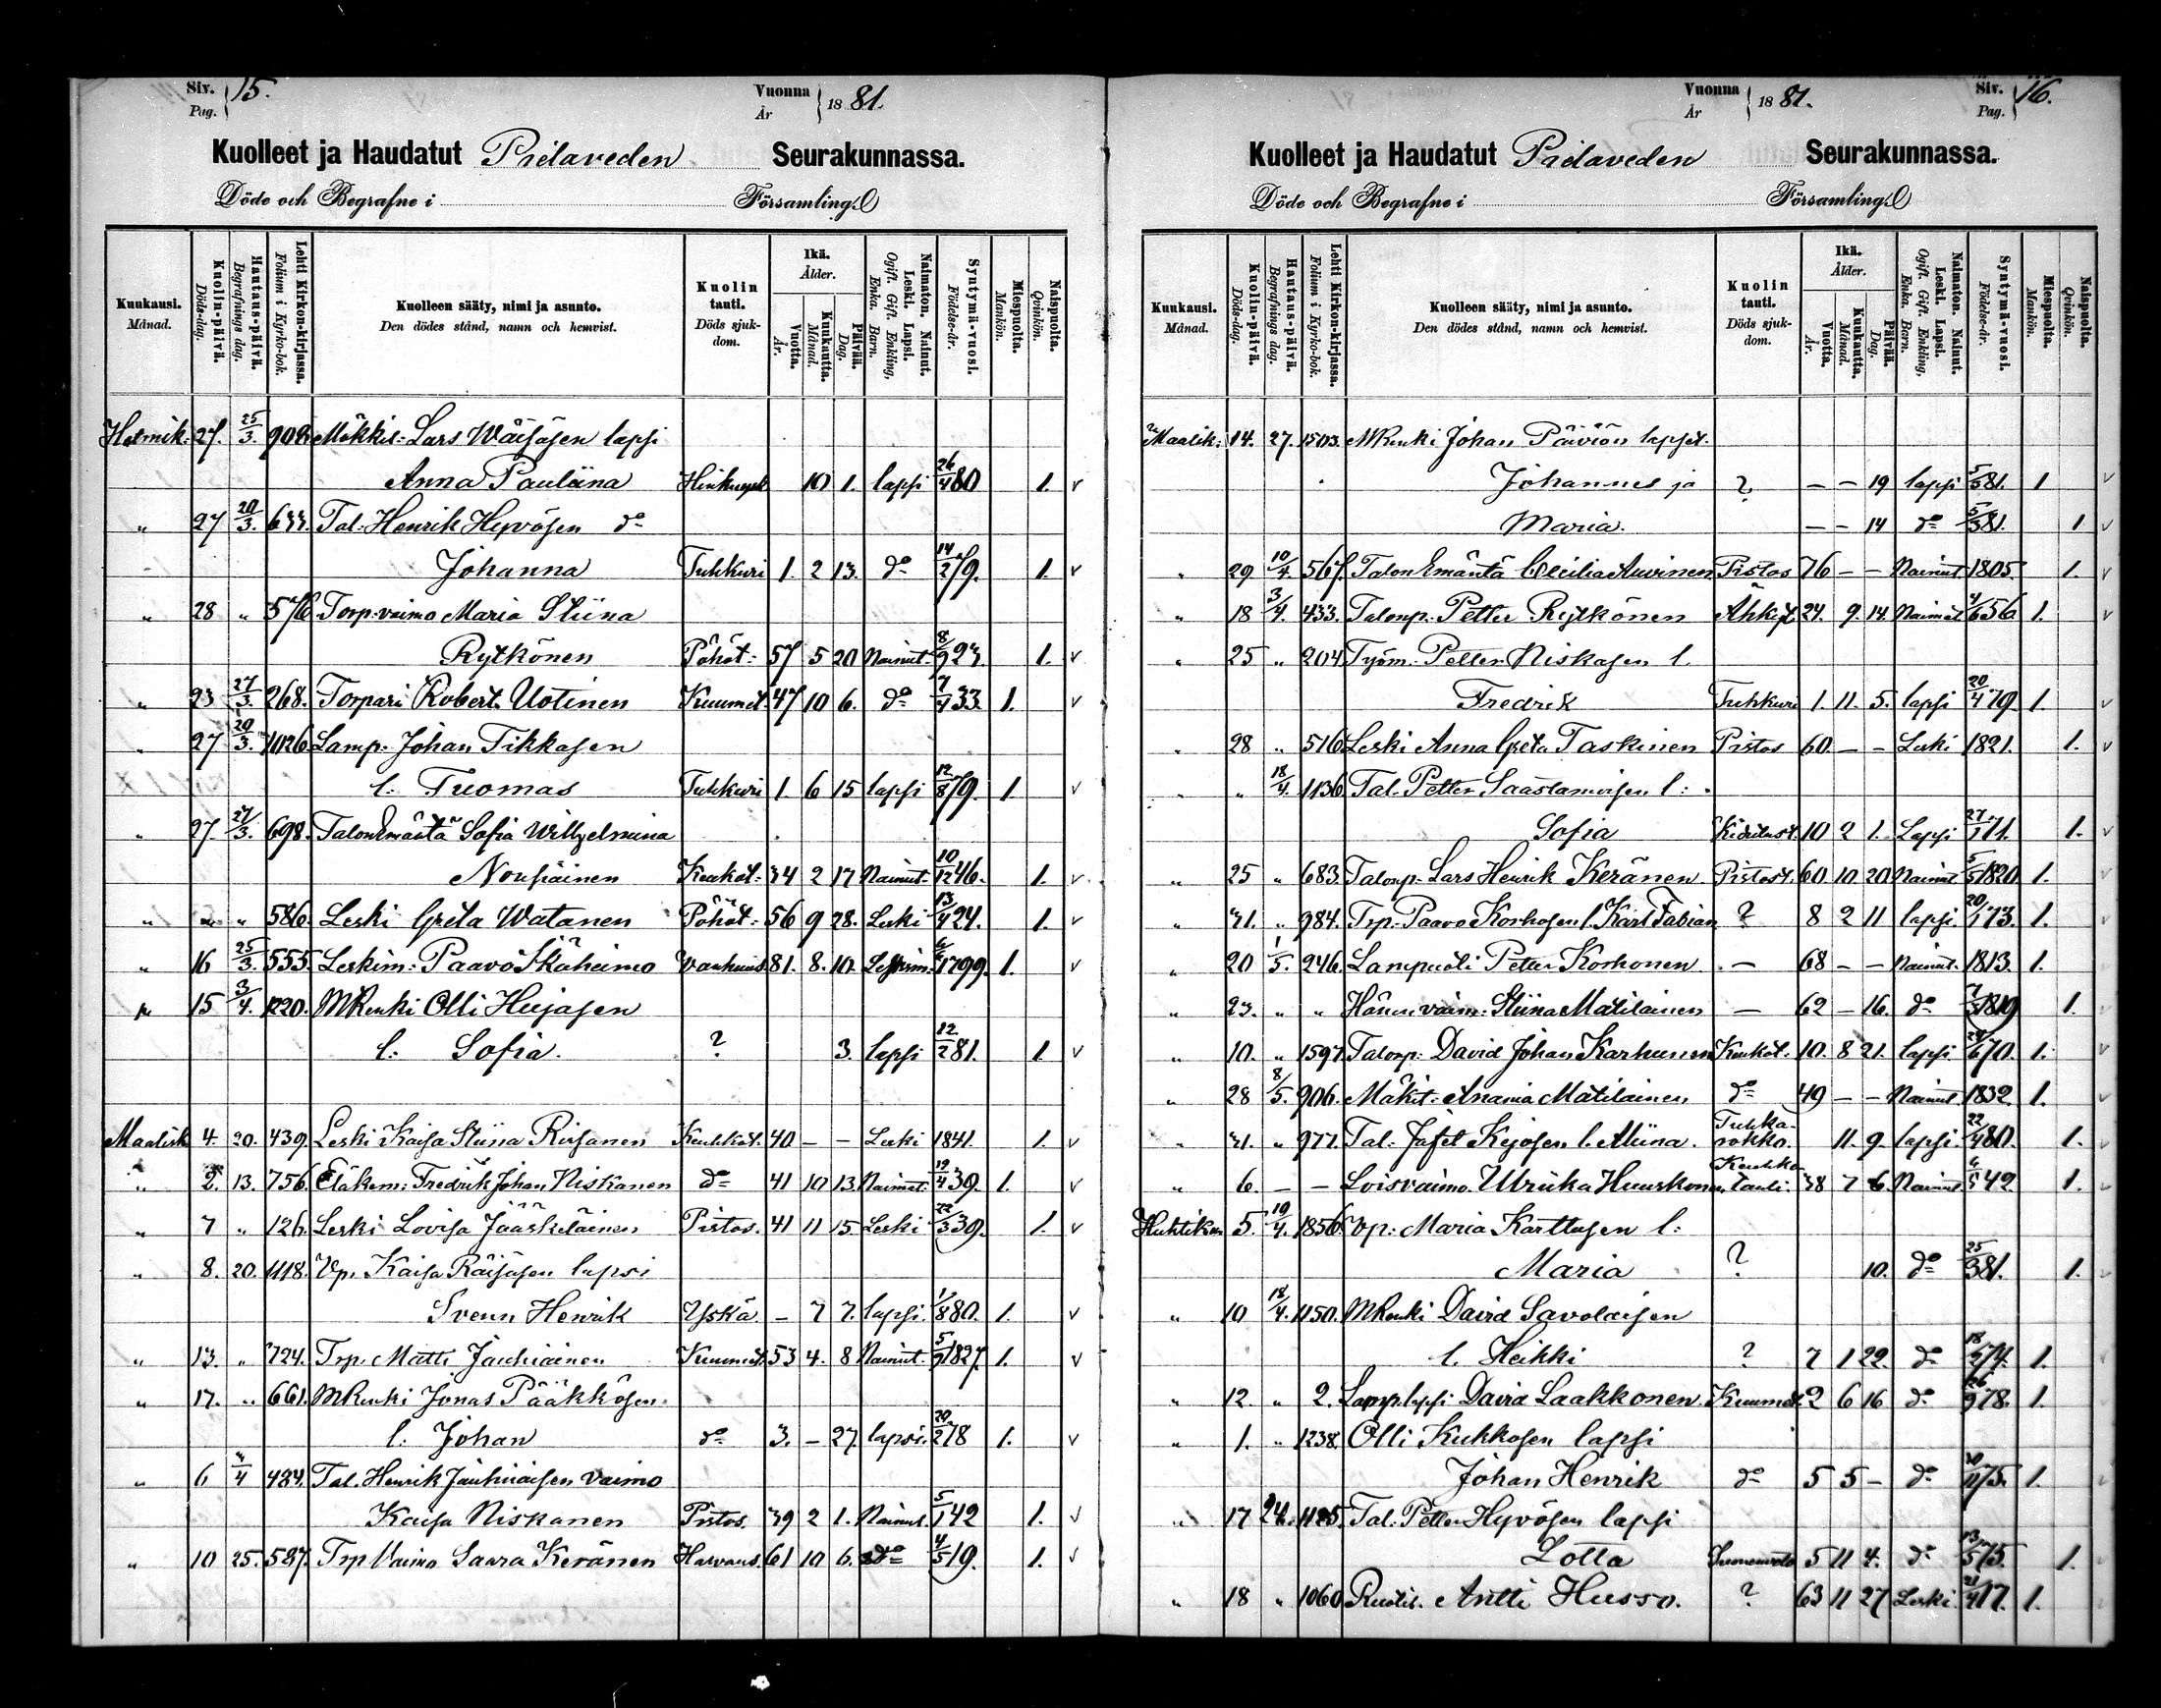 Siv. Pag. 15.
Vuonna År 1881.
Kuolleet ja Haudatut Pielaveden Seurakunnassa.
Döde och Begrafne i Församling.
Kuukausi. Månad.
Kuolin-päivä. Döds-dag.
Hautaus-päivä. Begrafnings dag.
Lehti Kirkon-kirjassa. Folium i Kyrko-bok.
Kuolleen sääty, nimi ja asunto. Den dödes stånd, namn och hemvist.
Kuolin tauti. Döds sjuk-dom.
Ikä. Ålder.
Vuotta. År.
Kuukautta. Månad.
Päivää. Dag.
Naimaton. Nainut. Leski. Lapsi. Ogift. Gift. Enkling, Enka. Barn.
Syntymä-vuosi. Födelse-år.
Miespuolta. Mankön.
Naispuolta. Qvinkön.
Helmik. 27. 25/3. 902 Mökkil: Lars Wäisäsen lapsi
Anna Pauliina 10 1. lapsi 26/4 80 1. v
" 27 20/3. 633. Tal. Henrik Hyvösen do
Johanna Tuhkuri 1. 2 13. do 14/2 79. 1. v
" 28 " 576 Torp. vaimo Maria Stiina
Rytkönen Pöhöt: 57 5 20 Nainut. 8/9 23. 1. v
" 23 27/3. 268. Torpari Robert Uotinen Kuumet. 47 10 6. do 7/4 33. 1. v
" 27 20/3. 1126. Lamp. Johan Tikkasen
l. Tuomas Tuhkuri 1. 6 15 lapsi 12/8 79. 1. v
" 27. 27/3. 698. Talon Emäntä Sofia Wilhelmina
Nousiainen Keuhkot: 34 2 17 Nainut. 10/12 46. 1. v
" " " 586. Leski Greta Watanen Pöhöt: 56 9 28. Leski 13/4 24. 1. v
" 16 25/3. 555. Leskim: Paavo Ikäheimo Vanhuus 81. 8. 10. Leskim. 1799. 1. v
" 15 3/4. 1220. MRenki Olli Hujasen
l: Sofia. ? 3. lapsi 12/2 81. 1 v
Maalisk 4. 20. 439. Leski Kaisa Stiina Kuhkot. 40 – – Leski 1841. 1. v
" 2. 13. 756. Eläkem: Fredrik Johan Niskanen do 41 10 13. Nainut. 19/4 39. 1. v
" 7 " 126. Leski Lovisa Jääskeläinen Pistos. 41 11 15. Leski 22/3 39. 1. v
" 8. 20. 1118. Vp. Kaisa Räisäsen lapsi
Svenn Henrik Yskä. – 7 7. lapsi. 1/8 80. 1. v
" 13. " 724. Trp. Matti Jauhiainen Kuumet. 53 4. 8 Nainut. 5/9 1827. 1. v
" 17. " 661. MRenki Jonas Pääkkösen
l: Johan do 3. – 27. lapsi. 20/2 78 1. v
" 6 3/4 484. Tal. Henrik Jauhiaisen vaimo
Kaisa Niskanen Pistos. 39 2 1. Nainut. 5/1 42 1. v
" 10 25. 587. Trp Vaimo Saara Keränen 61 10 6. do 4/5 19. 1. v
Vuonna År 1881.
Siv. Pag. 16.
Kuolleet ja Haudatut Pielaveden Seurakunnassa.
Döde och Begrafne i Församling.
Kuukausi. Månad.
Kuolin-päivä. Döds-dag.
Hautaus-päivä. Begrafnings dag.
Lehti Kirkon-kirjassa. Folium i Kyrko-bok.
Kuolleen sääty, nimi ja asunto. Den dödes stånd, namn och hemvist.
Kuolin tauti. Döds sjuk-dom.
Ikä. Ålder.
Vuotta. År.
Kuukautta. Månad.
Päivää. Dag.
Naimaton. Nainut. Leski. Lapsi. Ogift. Gift. Enkling, Enka. Barn.
Syntymä-vuosi. Födelse-år.
Miespuolta. Mankön.
Naispuolta. Qvinkön.
Maalik: 14. 27. 1503. MRenki Johan Päiviön lapset.
Johannes ja ? – – 19 lapsi 5/3 81. 1 v
Maria. – – 14 do 5/3 81. 1 v
" 29 10/4. 567. Talon Emäntä Cecilia Auvinen Pistos 76 – – Nainut 1805. 1. v
" 18 3/4. 433. Talonp. Petter Rytkönen Ähkyt. 24. 9. 14. Nainut 4/6 56. 1. v
" 25 " 204 Työm. Petter Niskasen l.
Fredrik Tuhkuri 1. 11. 5. lapsi 20/4 79. 1. v
" 28 " 516 Leski Anna Greta Taskinen Pistos 60 – – Leski 1821. 1. v
" " 18/4. 1136 Tal. Petter Saastamoisen l:
Sofia 10 2 1. Lapsi 27/1 71. 1. v
" 25 " 683. Talonp. Lars Henrik Keränen Pistost. 60 10. 20 Nainut 5/5 1820. 1. v
" 31. " 984. Trp. Paavo Korhosen l. Karl Fabian ? 8 2 11 lapsi 20/1 73. 1. v
" 20 1/5. 246. Lampuoti Petter Korhonen – 68 – – Nainut. 1813. 1. v
" 23. " " Hänen vaim. Stiina Matilainen – 62 – 16. do 7/3 1819 1. v
" 10. " 1597 Talonp: David Johan Karhunen Keuhkot. 10. 8 21. lapsi 70. 1. v
" 28 8/5. 906. Mökit. Anania Matilainen do 49 – – Nainut 1832. 1. v
" 31. " 977. Tal: Jafet Kejosen l. Miina. Tuhka-rokko. 11. 9. lapsi. 22/4 80. 1. v
" 6. – – Loisvaimo Ulrika Huuskonen Keuhko-tauti. 38 7 6 Nainut 42 1. v
Huhtikuu 5. 19/4. 1856. Vp: Maria Karttusen l:
Maria ? 10. do 25/3 81. 1. v
" 10 18/4. 1150. MRenki David Savolaisen
l. Heikki ? 7 1 22. do 18/2 74. 1. v
" 12. " 2. Lamp. lapsi David Laakkonen. Kuumet. 2 6 16 do 26/9 78. 1. v
" 1. " 1238. Olli Kukkosen lapsi
Johan Henrik do 5 5 – do 75. 1. v
" 17 24. 1125. Tal. Petter Hyvösen lapsi
Lotta Suonenveto 5 11 4. do 13/5 75. 1. v
" 18 " 1060 Ruotil. Antti Husso. ? 63 11 27 Leski 21/4 17. 1. v